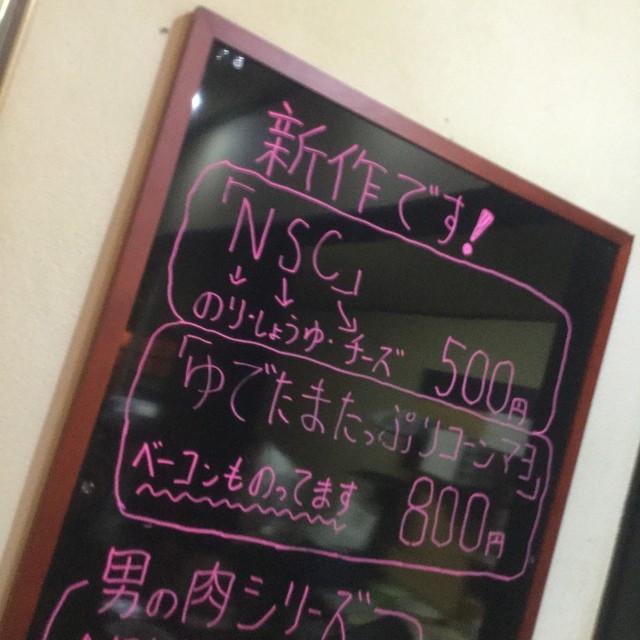 新作です!
「NSC」
↓ ↓ ↓
のり・しょうゆ・チーズ 500円
「ゆでたまたっぷりコーンマヨ」
ベーコンものってます 800円
男の肉シリーズ